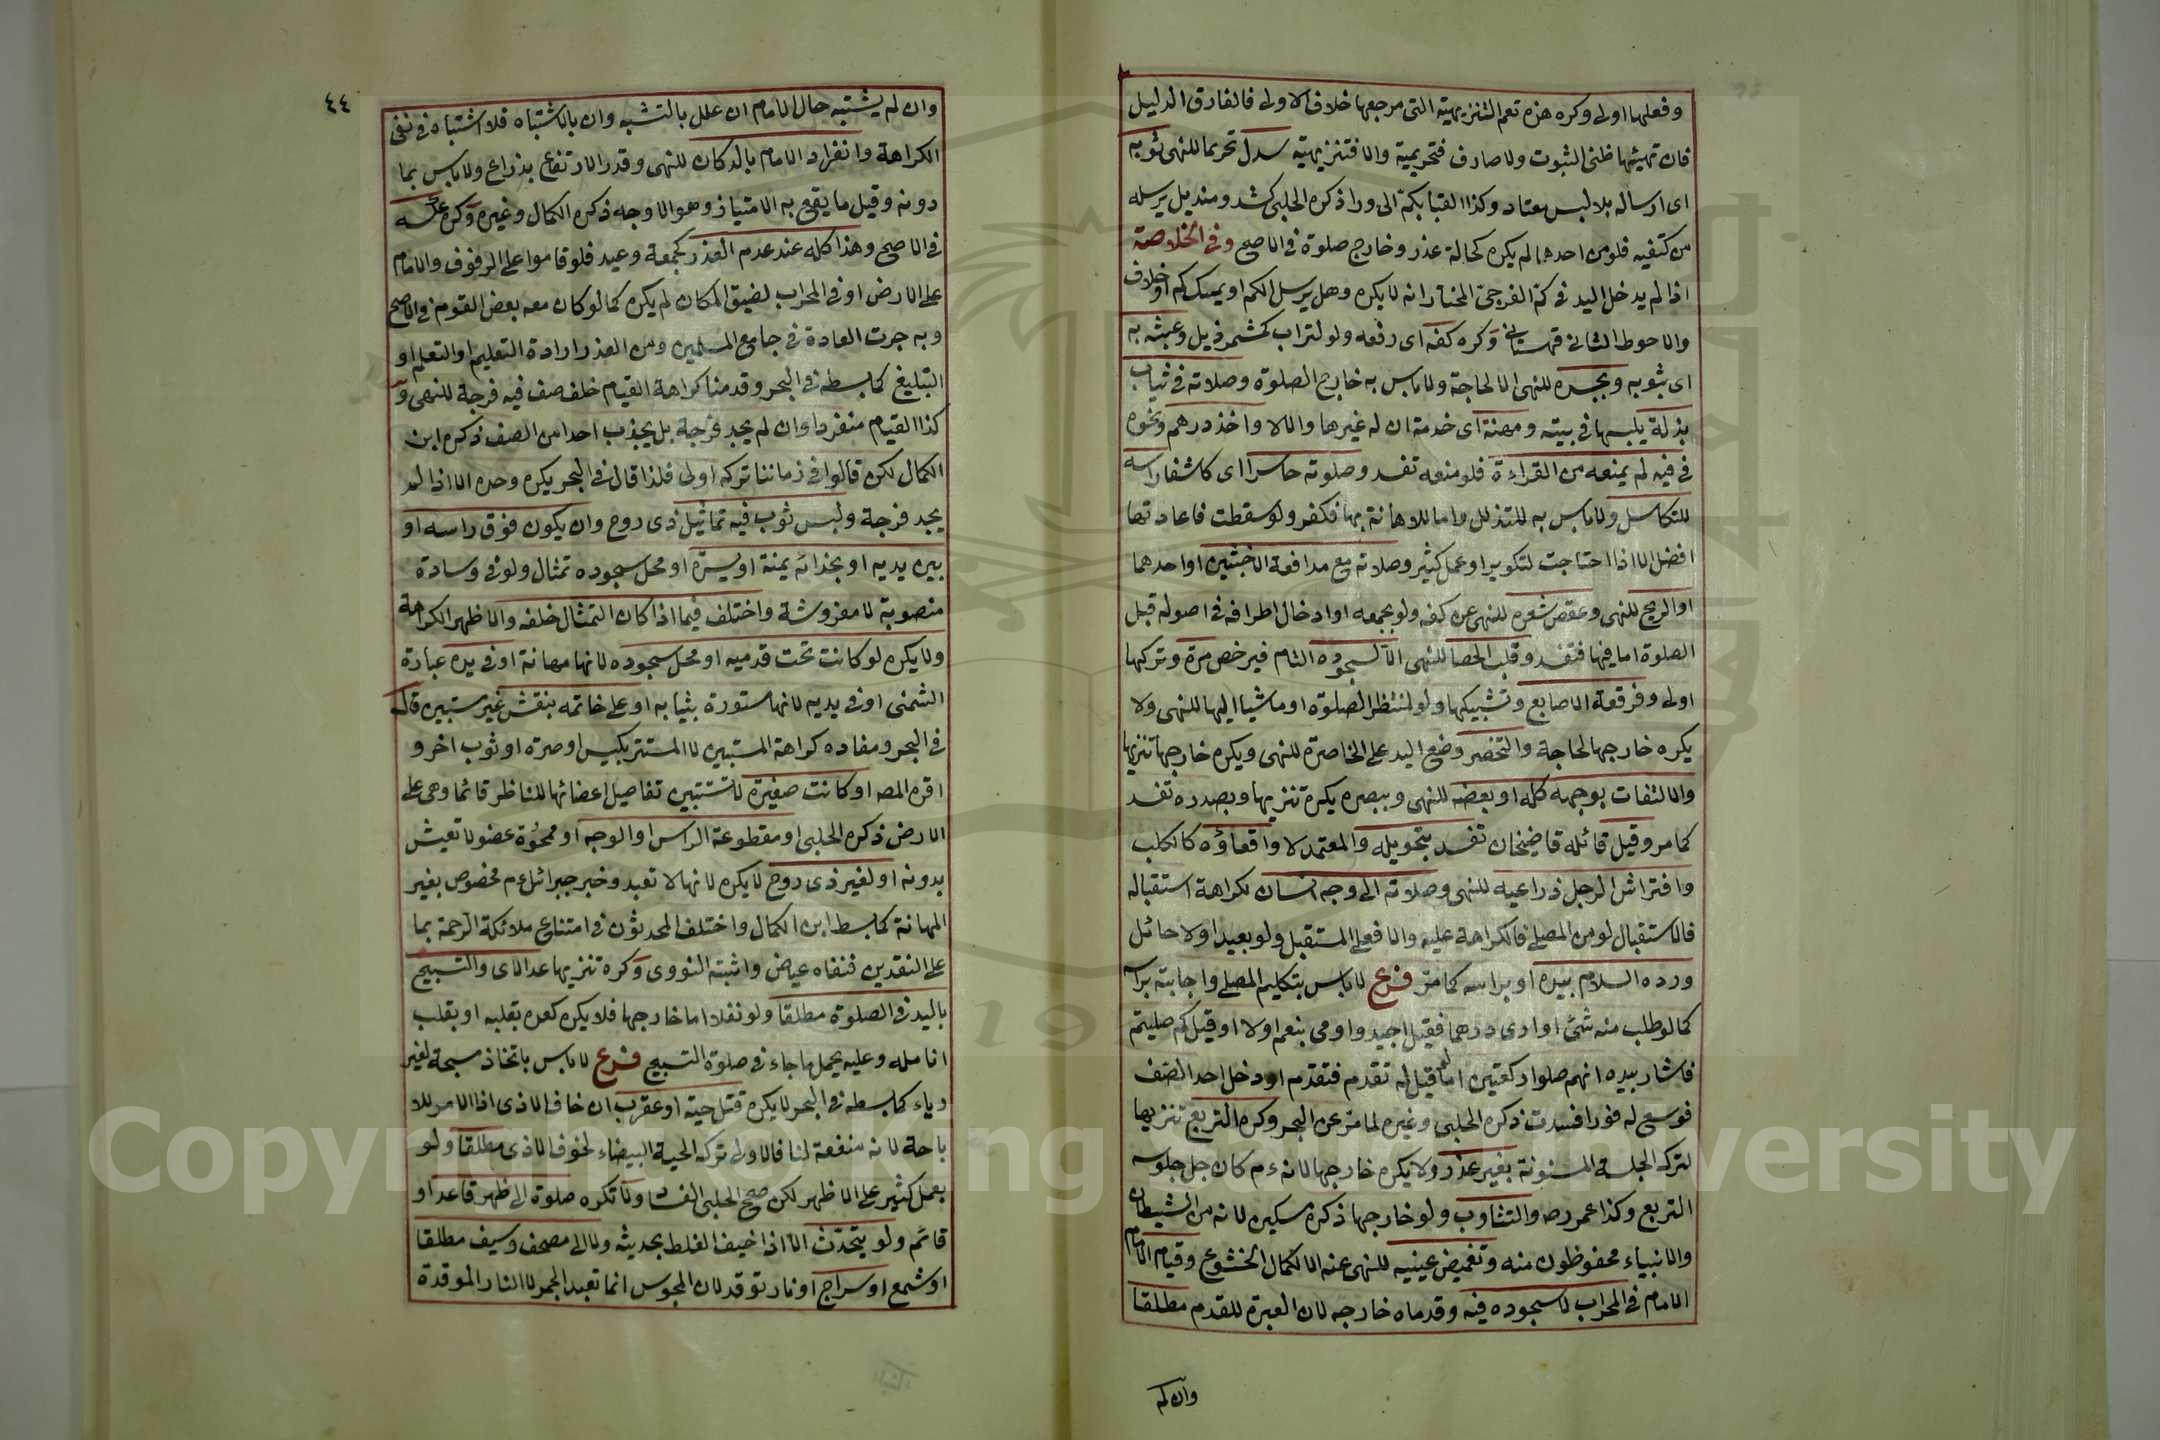 وفعلها اولى وكره هزه تعم التنزيهية التى مرجعها خلاف الاولى فالفارق الدليل
فان نهيئها ظنى الثبوت ولا صارف فتحريمية والا فتنزيهية سدل تحريما للنهى ثوبه
اى ارساله بلا لبس معتاد وكذا القبا بكم الى ورا ذكره الحلبى كشد ومنديل يرسله
من كتفيه فلو من احدهما لم يكره كحالة عذر وخارج صلوة فى الاصح وفى الخلاصة
اذا لم يدخل اليد فى كم الفرجى المختار انه لا يكره وهل يرسل الكم او يمسك كم اوخلاف
والاحوط الثانى قهستانى وكره كفه اى رفعه ولو لتراب كمشمر ذيل وعبثه به
اى بثوبه وبجسده للنهى الا لحاجة ولا باس به خارج الصلوة وصلاته فى ثياب
بذلة يلبسها فى بيته ومهنة اى خدمة ان له غيرها والا لا واخذ درهم ونحوه
فى فيه لم يمنعه من القراءة فلو منعه تفسد وصلوته حاسرا اى كاشفا راسه
للتكاسل ولا باس به للتذلل واما للاهانة بها فكفر ولو سقطت فاعادتها
افضل الا اذا احتاجت لتكوير او عمل كثير وصلاته مع مدافعة الاخبثين او احدهما
او الريح للنهى وعقص شعره للنهى عن كفه ولو بجمعه او ادخال اطرافه فى اصوله قبل
الصلوة اما فيها فتفسد وقلب الحصا للنهى الا لسجوده التام فيرخص مرة وتركها
اولى وفرقعة الاصابع وتشبيكها ولو لمنتظر الصلوة او ماشيا اليها للنهى ولا
يكره خارجها لحاجة والتخصر وضع اليد على الخاصرة للنهى ويكره خارجها تنزيها
والالتفات بوجهه كله او بعضه للنهى وببصره يكره تنزيها وبصدره تفسد
كما مر وقيل قائله قاضيخان تفسد بتحويله والمعتمد لا واقعاؤه كالكلب
وافتراش الرجل ذراعيه للنهى وصلاته الى وجه انسان لكراهة استقباله
فالاستقبال لو من المصلى فالكراهة عليه والا فعلى المستقبل ولو بعيدا ولا حائل
ورده السلام بيده او براسه كما مر فرع لا باس بتكليم المصلى واجابته براسه
كما لو طلب منه شئ او ارى درهما فقيل اجيد واومى بنعم او لا او قيل كم صليتم
فاشار بيده انهم صلوا ركعتين اما لو قيل له تقدم فتقدم او دخل احد الصف
فوسع له فورا فسدت ذكره الحلبى وغيره لما مر عن البحر وكره التربع تنزيها
لترك الجلسة المسنونة بغير عذر ولا يكره خارجها لانه عم كان جل جلوسه
التربع وكذا عمر رضه والتثاوب ولو خارجها ذكره مسكين لانه من الشيطان
والانبياء محفوظون منه وتغميض عينيه للنهى عنه الا لكمال الخشوع وقيام الامام
الامام فى المحراب لا سجوده فيه وقدماه خارجه لان العبرة للقدم مطلقا
وان لم
٤٤
وان لم يشتبه حال الامام ان علل بالتشبه وان بالاشتباه فلا اشتباه فى نفى
الكراهة وانفراد الامام بالدكان للنهى وقدر الارتفاع بذراع ولا باس بما
دونه وقيل ما يقع به الامتياز وهو الاوجه ذكره الكمال وغيره وكره عكسه
فى الاصح وهذا كله عند عدم العذر كجمعة وعيد فلو قاموا على الرفوف والامام
على الارض او فى المحراب لضيق المكان لم يكره كما لو كان معه بعض القوم فى الاصح
وبه جرت العادة فى جامع المسلمين ومن العذر ارادة التعليم او التعلم او
التبليغ كما بسطه فى البحر وقدمنا كراهة القيام خلف صف فيه فرجة للنهى و
كذا القيام منفردا وان لم يجد فرجة بل يجذب احدا من الصف ذكره ابن
الكمال لكن قالوا فى زماننا تركه اولى فلذا قال فى البحر يكره وحده الا اذا لم
يجد فرجة ولبس ثوب فيه تماثيل ذى روح وان يكون فوق راسه او
بين يديه او بحذائه يمنة او يسرة او محل سجوده تمثال ولو فى وسادة
منصوبة لا مفروشة واختلف فيما اذا كان التمثال خلفه والاظهر الكراهة
ولا يكره لو كانت تحت قدميه او محل سجوده لانها مهانة او فى يده عبارة
الشمنى او فى يديه لانها مستورة بثيابه او على خاتمه بنقش غير مستبين قاله
فى البحر ومفاده كراهة المستبين لا المستتر بكيس او صرة او ثوب اخر و
اقره المصه او كانت صغيرة لا تستبين تفاصيل اعضائها للناظر قائما وهى على
الارض ذكره الحلبى او مقطوعة الراس او الوجه او ممحوة عضو لا تعيش
بدونه او لغير ذى روح لا يكره لانها لا تعبد وخبر جبرائل عم مخصوص بغير
المهانة كما بسط ابن الكمال واختلف المحدثون فى امتناع ملائكة الرحمة بما
على النقدين فنفاه عياض واثبته النووى وكره تنزيها عد الاى والتسبيح
باليد فى الصلوة مطلقا ولو نفلا اما خارجها فلا يكره كعده بقلبه او بقلب
انامله وعليه يحمل ما جاء فى صلوة التسبيح فرع لا باس باتخاذ مسبحة لغير
رياء كما بسطه فى البحر لا يكره قتل حية او عقرب ان خاف الاذى اذ الامر للا
باحة لانه منفعة لنا فالاولى ترك الحية البيضاء لخوف الاذى مطلقا ولو
بعمل كثير على الاظهر لكن صحح الحلبى الفساد ولا تكره صلوة الى ظهر قاعد او
قائم ولو يتحدث الا اذا خيف الغلط بحديثه ولا الى مصحف وسيف مطلقا
او شمع او سراج او نار توقد لان المجوس انما تعبد الجمر لا النار الموقدة
Copyright © King Saud University